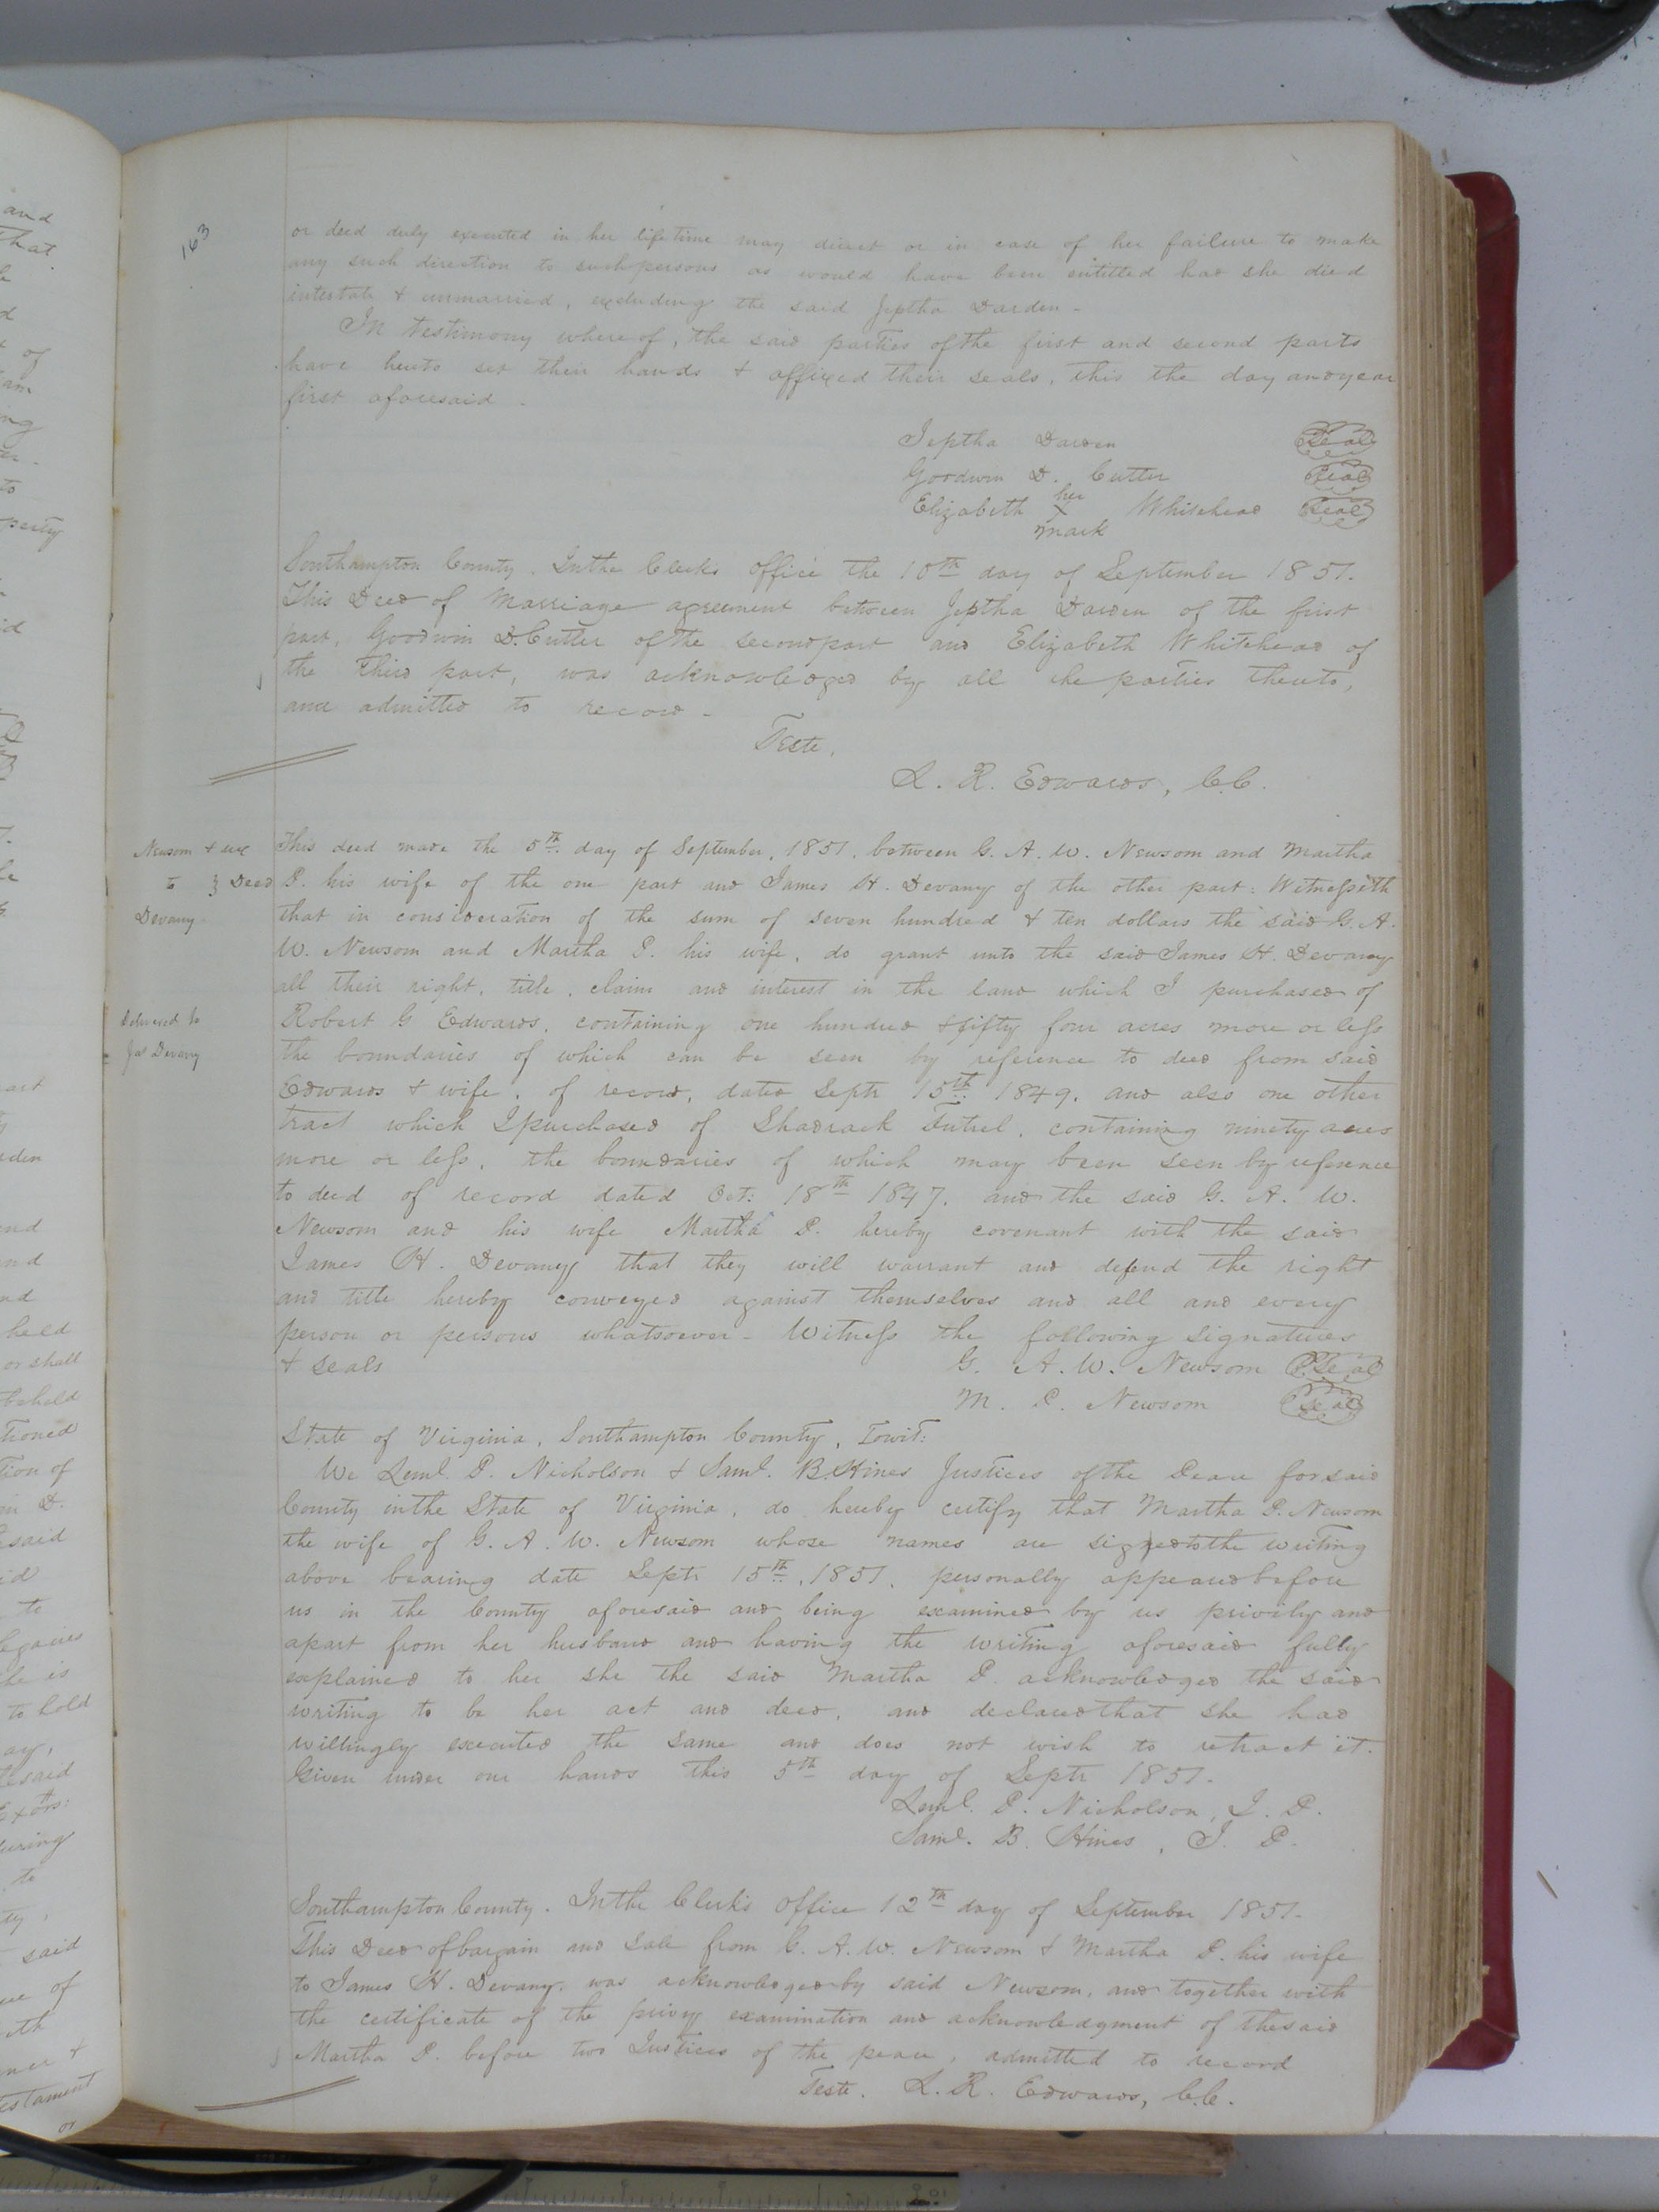 163
or deed duly executed in her lifetime may direct or in case of her failure to make
any such direction to such persons as would have been entitled had she died
intestate & unmarried, excluding the said Jeptha Darden -
In testimony whereof, the said parties of the first and second parts
have hereto set their hands & affixed their seals, this the day and year
first aforesaid -
Jeptha Darden Seal
Goodwin D. Cutter Seal
her
Elizabeth X Whitehead Seal
mark
Southampton County. In the Clerks office the 10th day of September 1851.
This Deed of Marriage agreement between Jeptha Darden of the first
part, Goodwin D. Cutter of the second part and Elizabeth Whitehead of
the third part, was acknowledged by all the parties thereto,
and admitted to record -
Teste,
L. R. Edwards, C.C.
Newsom & ux
to } Deed
Devany
This deed made the 5th day of September, 1851. between G. A. W. Newsom and Martha
P. his wife of the one part and James H. Devany of the other part: Witnesseth
that in consideration of the sum of seven hundred & ten dollars the said G. A.
W. Newsom and Martha P. his wife, do grant unto the said James H. Devany
all their right, title, claim and interest in the land which I purchased of
Delivered to
Jas Devany
Robert G Edwards, containing one hundred & fifty four acres more or less
the boundaries of which can be seen by reference to deed from said
Edwards & wife, of record, dated Septr 15th 1849. and also one other
tract which I purchased of Shadrack Futrel, containing ninety acres
more or less, the boundaries of which may been seen by reference
to deed of record dated Oct: 18th 1847. and the said G. A. W.
Newsom and his wife Martha P. hereby covenant with the said
James H. Devany that they will warrant and defend the right
and title hereby conveyed against themselves and all and every
person or persons whatsoever - Witness the following signatures
& seals
G. A. W. Newsom Seal
M. P. Newsom Seal
State of Virginia, Southampton County, Towit:
We Leml. P. Nicholson & Saml. B. Hines Justices of the Peace for said
County in the State of Virginia, do hereby certify that Martha P. Newsom
the wife of G. A. W. Newsom whose names are signed to the writing
above bearing date Septr 15th, 1851, personally appeared before
us in the County aforesaid and being examined by us privily and
apart from her husband and having the writing aforesaid fully
explained to her she the said Martha P. acknowledged the said
writing to be her act and deed, and declared that she had
willingly executed the same and does not wish to retract it.
Given under our hands this 5th day of Septr 1851.
Leml. P. Nicholson, J. P.
Saml. B. Hines, J. P.
Southampton County. In the Clerk's Office 12th day of September 1851.
This Deed of bargain and sale from G. A. W. Newsom & Martha P. his wife
to James H. Devany, was acknowledged by said Newsom, and together with
the certificate of the privy examination and acknowledgment of the said
Martha P. before two Justices of the peace, admitted to record
Teste. L. R. Edwards, C.C.